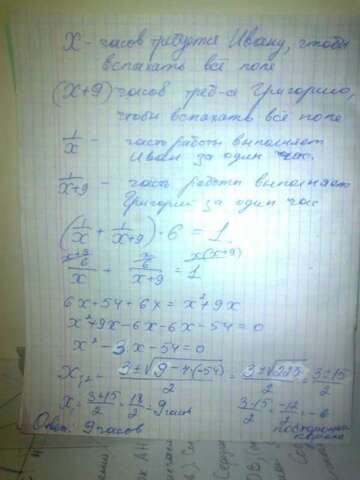 X - часов требуется Ивану, чтобы
вспахать всё поле
(X+9) часов треб-ся Григорию,
чтобы вспахать всё поле
1/x - часть работы выполняет
Иван за один час.
1/x+9 - часть работы выполняет
Григорий за один час
(1/x + 1/x+9) · 6 = 1
x+9/6 x/6 x(x+9)
1/x + 1/x+9 = 1
6x+54+6x = x²+9x
x²+9x-6x-6x-54=0
x²-3x-54=0
x₁,₂ = 3±√9-4·(-54)/2 = 3±√225/2 = 3±15/2
x₁ = 3+15/2 = 18/2 = 9 часов 3-15/2 = -12/2 = -6
Ответ: 9 часов посторонний
корень